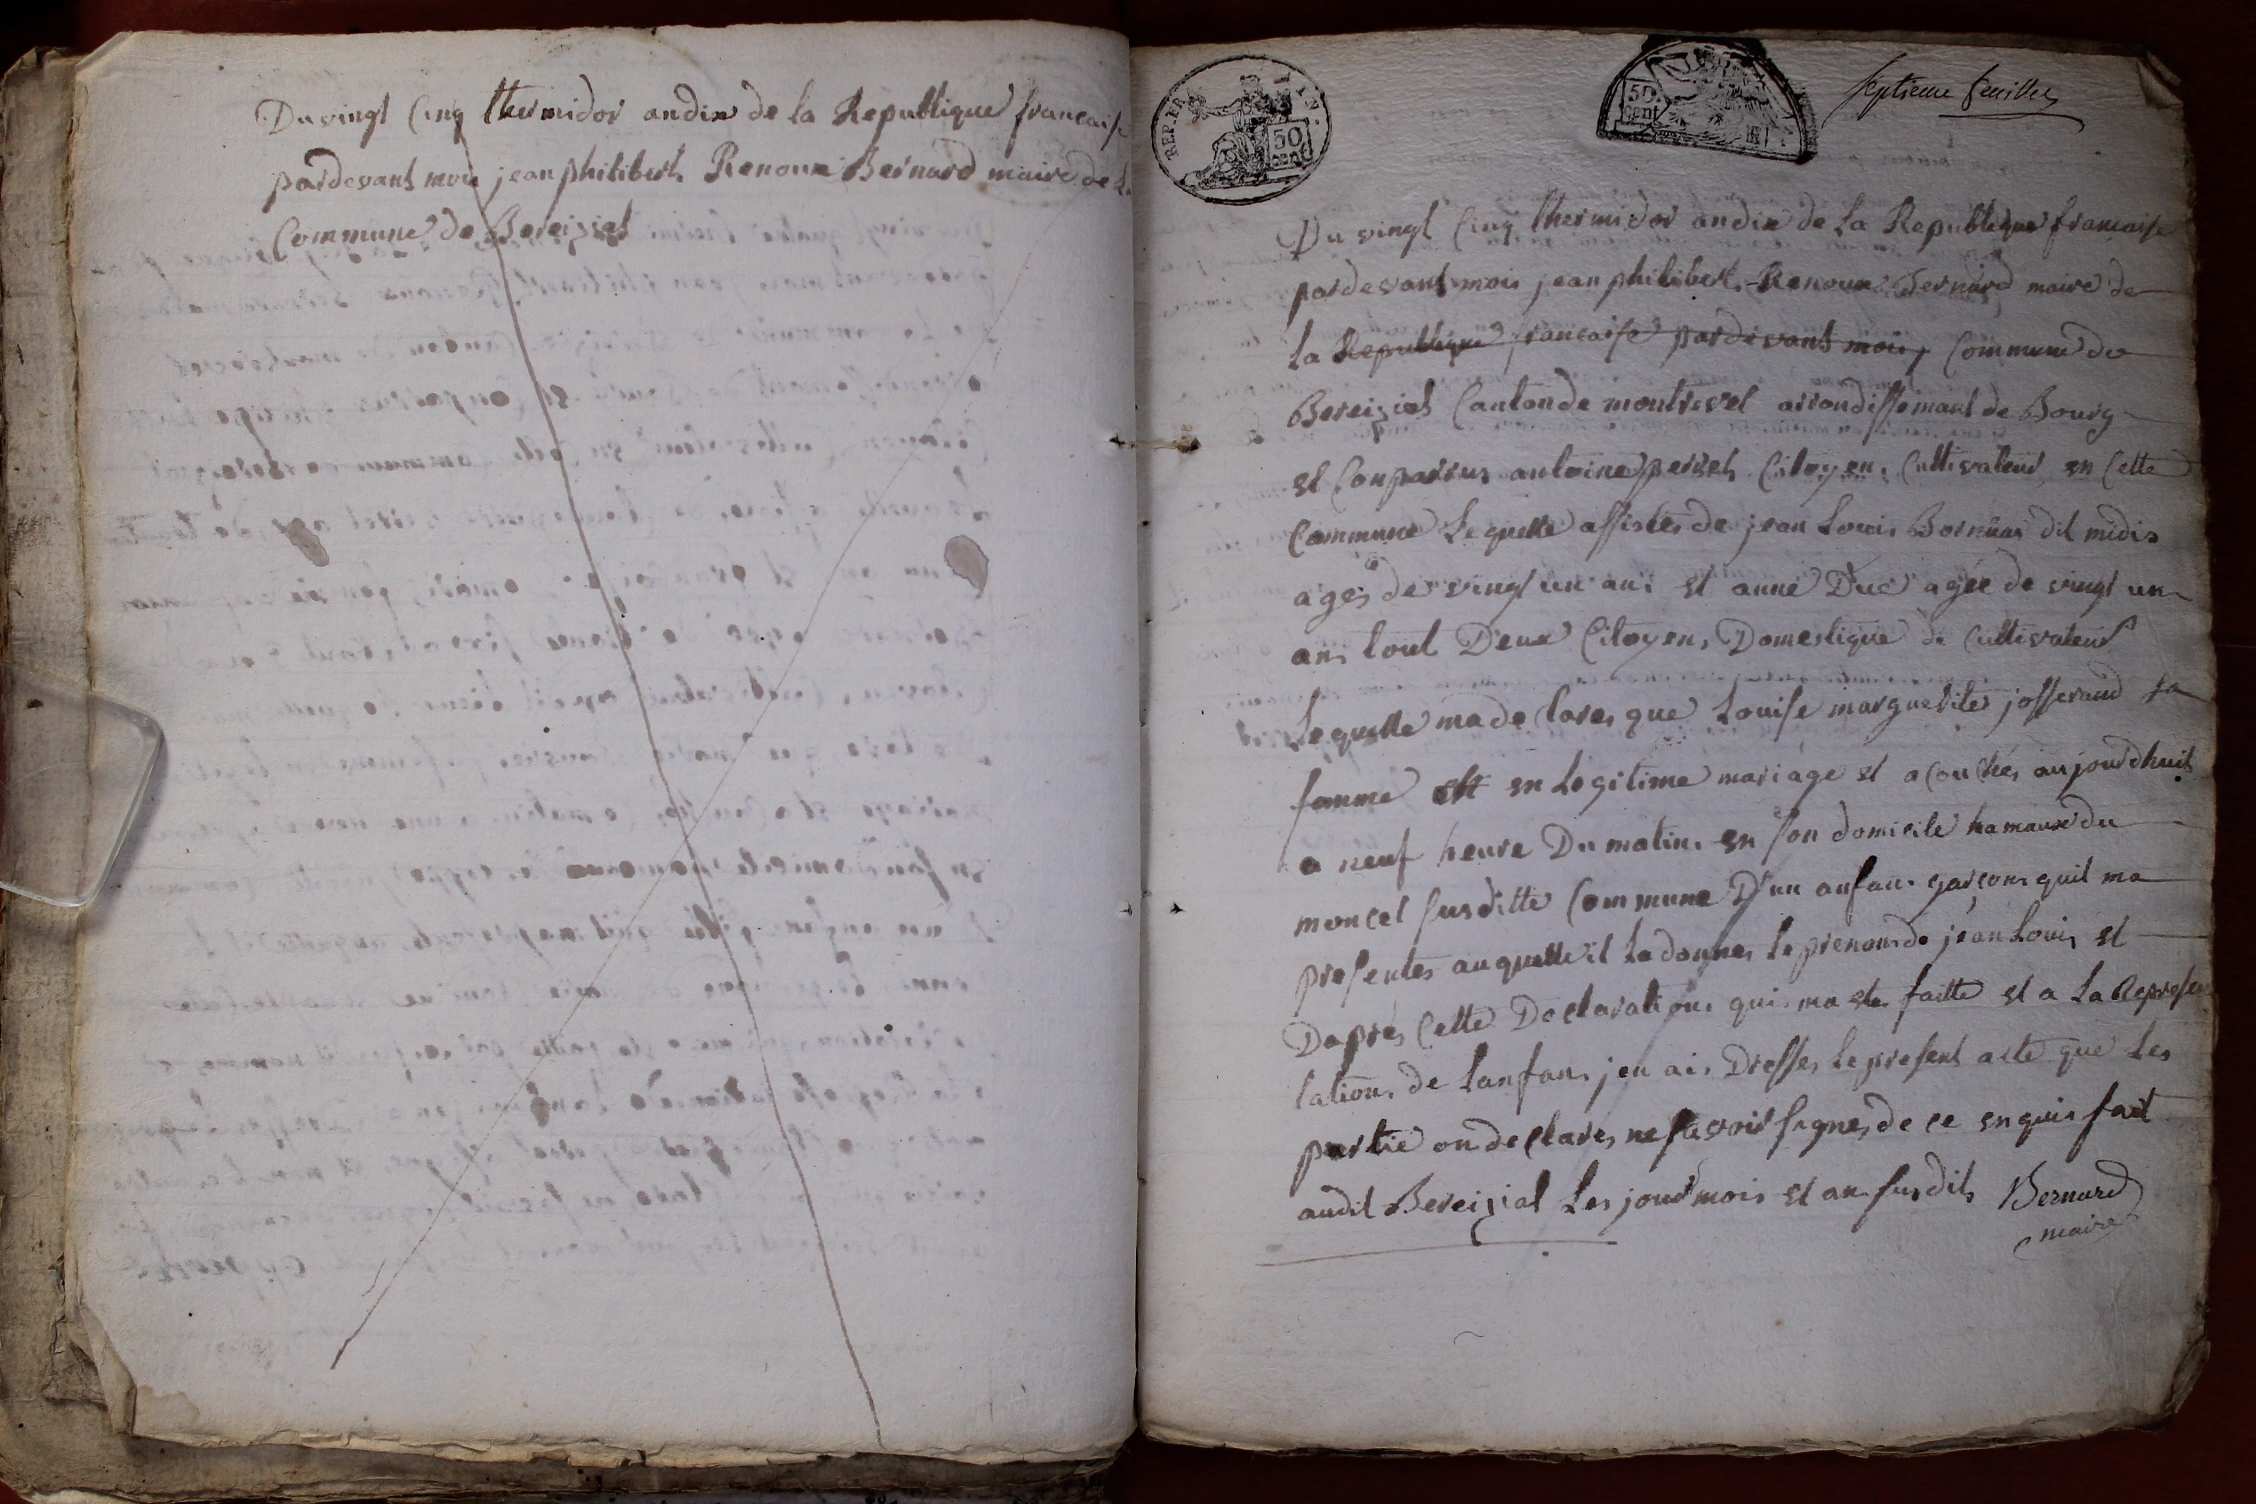 Du vingt Cinq thermidor an dix de la Republique francaise
pardevant moi jean philibert Renoux Bernard maire de La
Commune de Bereiziat
REP. FRA.
50
cent
50.
cent
septieme feuillet
Du vingt Cinq thermidor an dix de La Republique francaise
pardevant moi jean philibert Renoux Bernard maire de
la Republique francaise pardevant moi, Commune de
Bereiziat Canton de montrevel arrondissemant de Bourg
et Conparrus antoine perret Citoyen Cultivateur en Cette
Commune Lequelle assistes de jean Louis Bornuat dit midis
agés de vingt un ans et anne Duc agée de vingt un
ans tout Deux Citoyens Domestique de Cultivateur
Lequelle ma declares que Louise marguerite josserand sa
famme est en Legitime mariage et a couchés aujourdhuit
a neuf heure Du matin en son domicile hamaux du
moncel susditte Commune D'un anfans garçons quil ma
presentes auquelle il la donnes Le prenom de jean Louis et
Daprés Cette Declarations qui ma ete faitte et a La Represen
tations de Lanfans jen ais Dresses Le present acte que Les
partie on declares ne savoir signes de ce enquis fait
audit Bereiziat Les jour mois et an susdits Bernard
maire